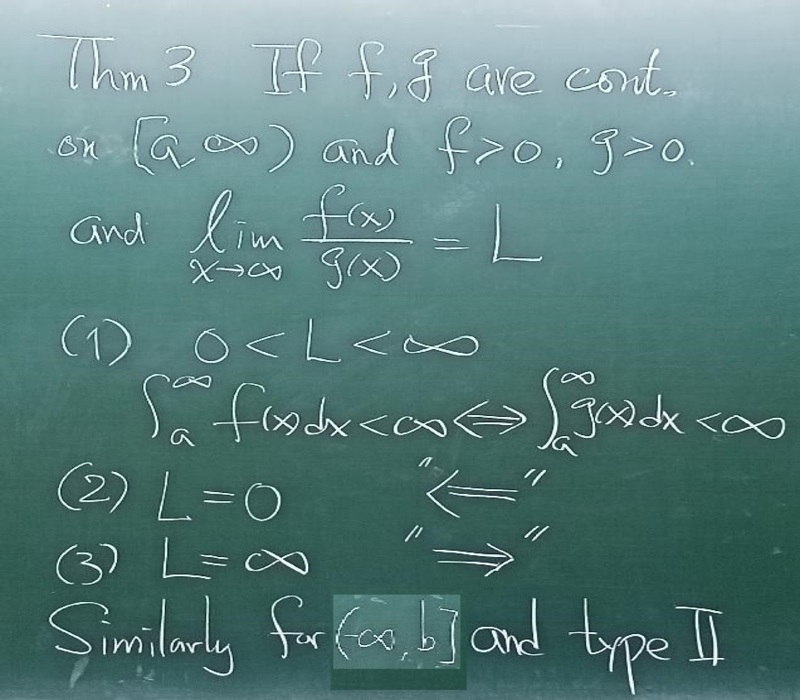 Thm 3 If f, g are cont.
on [a ∞) and f>0, g>0.
and lim_{x→∞} f(x)/g(x) = L
(1) 0 < L < ∞
∫_a^∞ f(x)dx < ∞ ⇔ ∫_a^∞ g(x)dx < ∞
(2) L = 0 "⇐"
(3) L = ∞ "⇒"
Similarly for (-∞, b] and type II